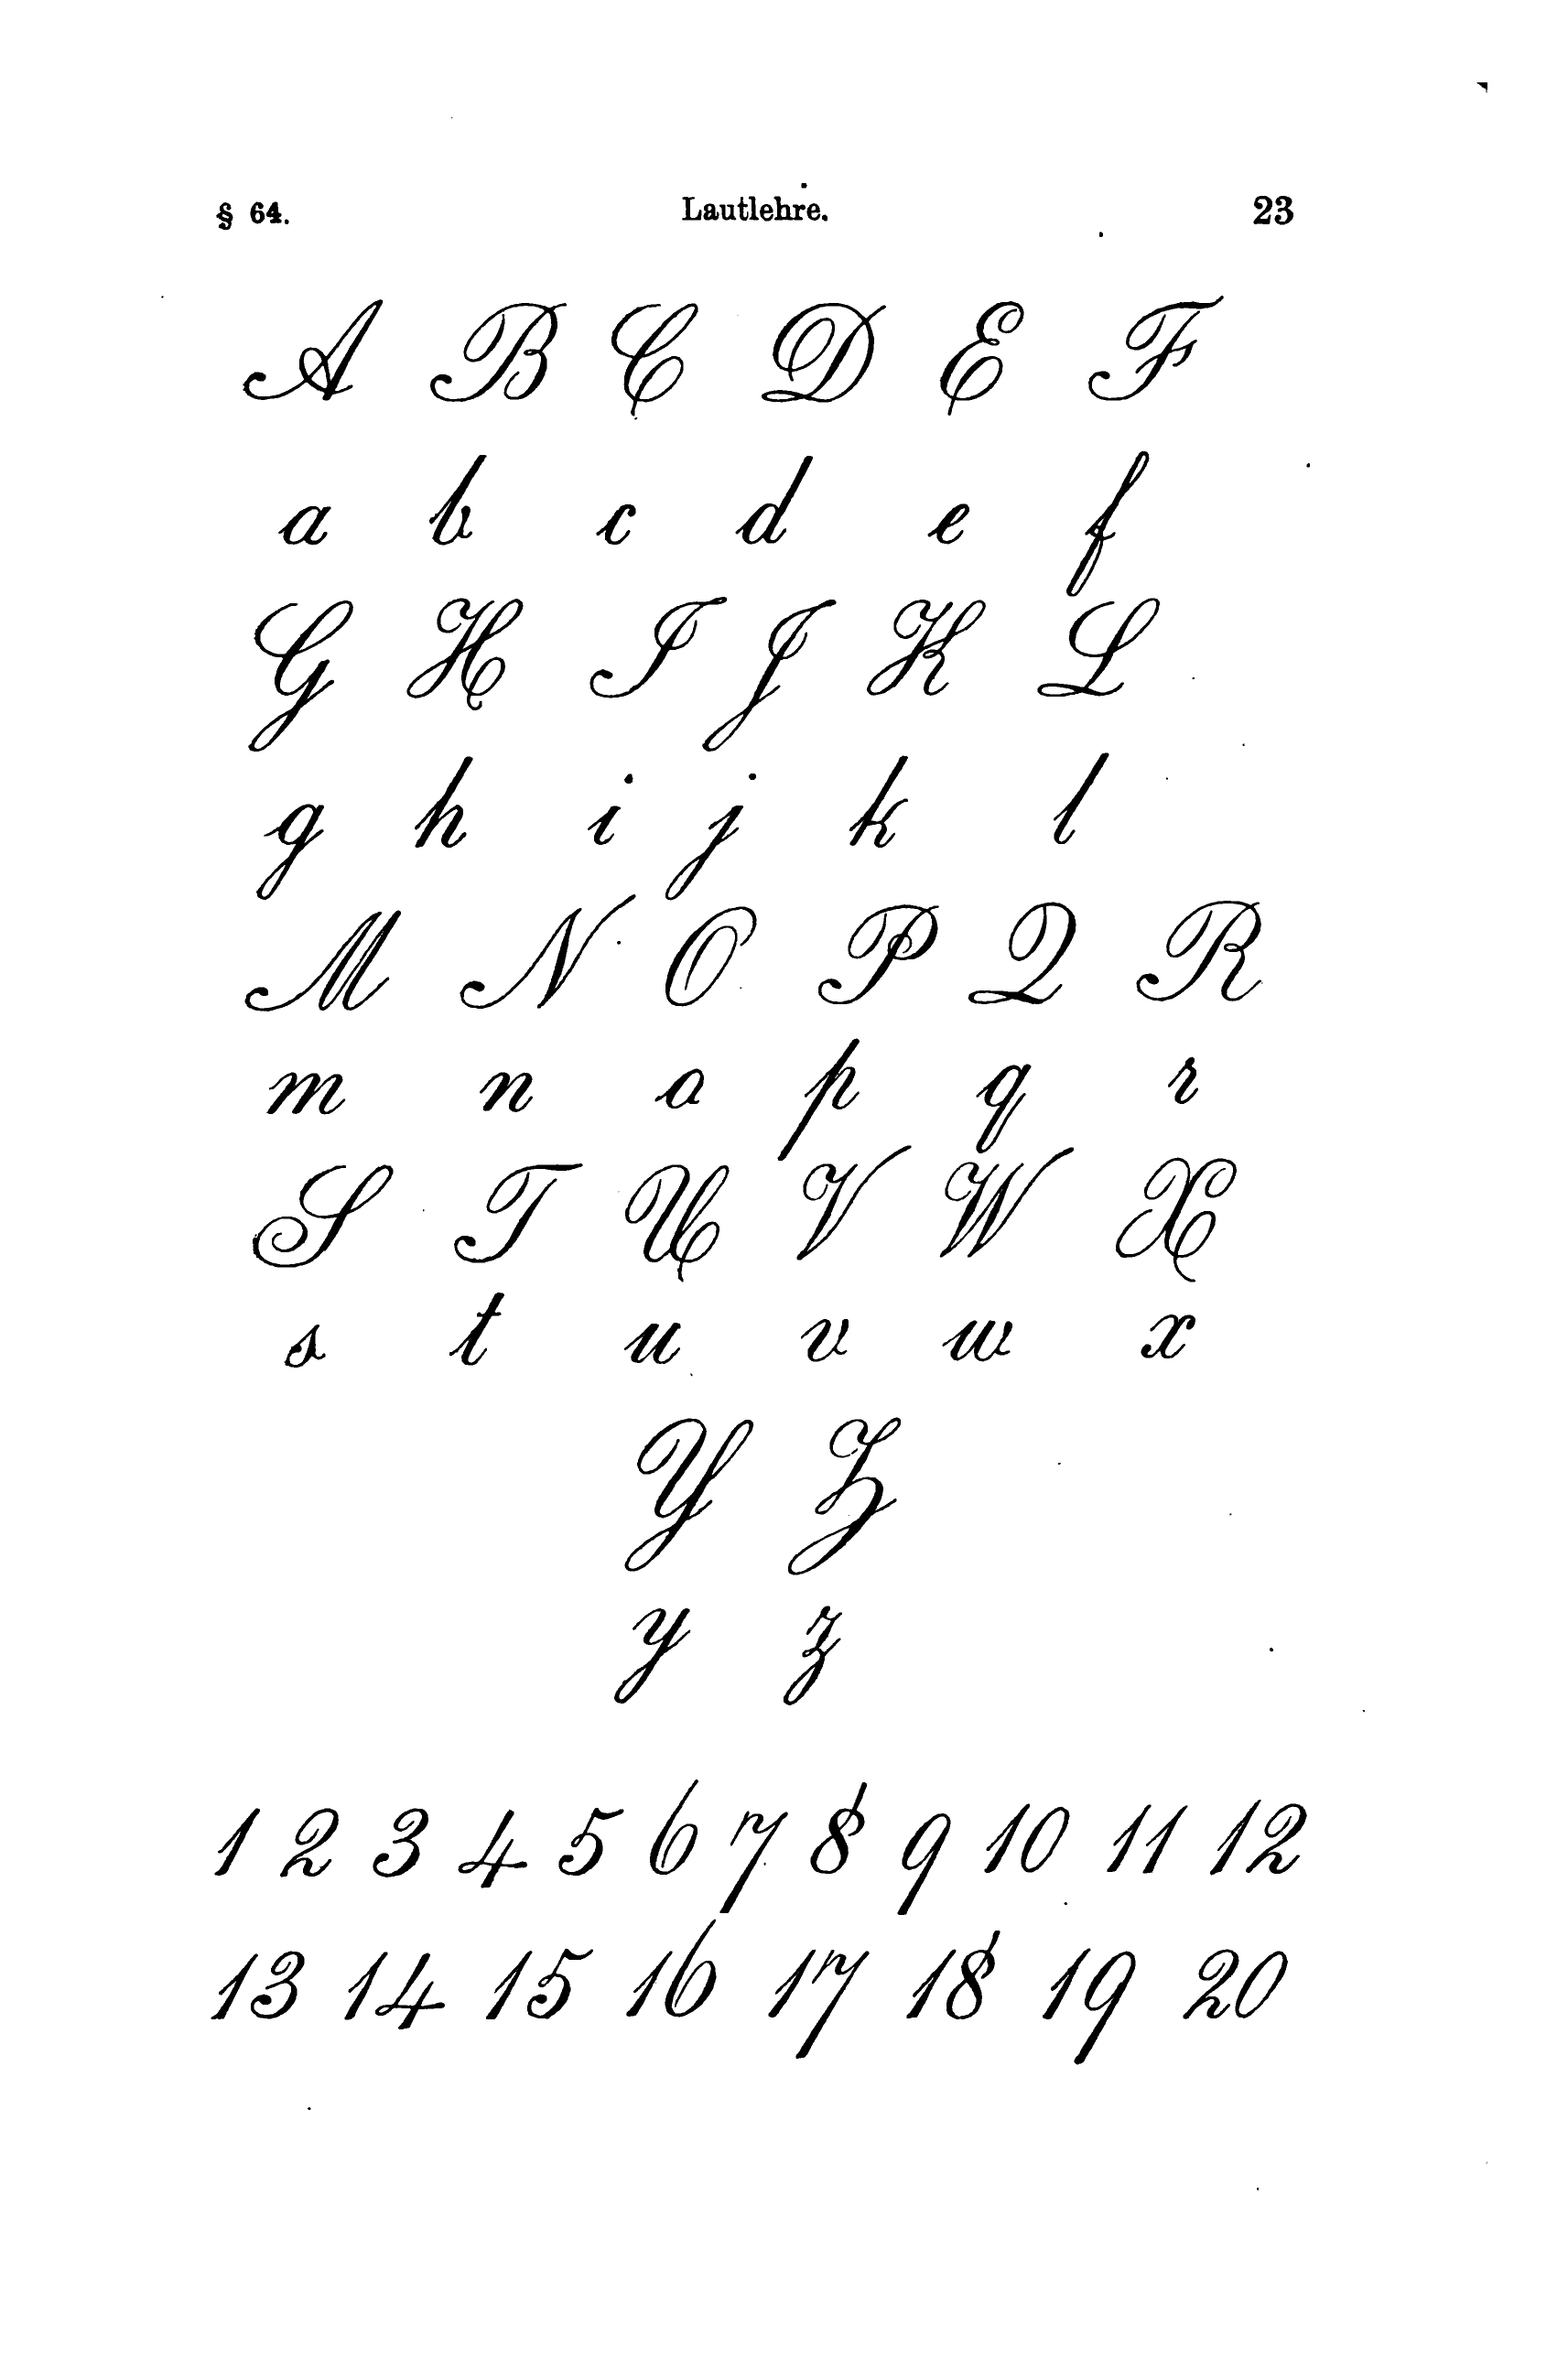 § 64. Lautlehre. 23
A B C D E F
a b c d e f
G H I J K L
g h i j k l
M N O P Q R
m n o p q r
S T U V W X
s t u v w x
Y Z
y z
1 2 3 4 5 6 7 8 9 10 11 12
13 14 15 16 17 18 19 20